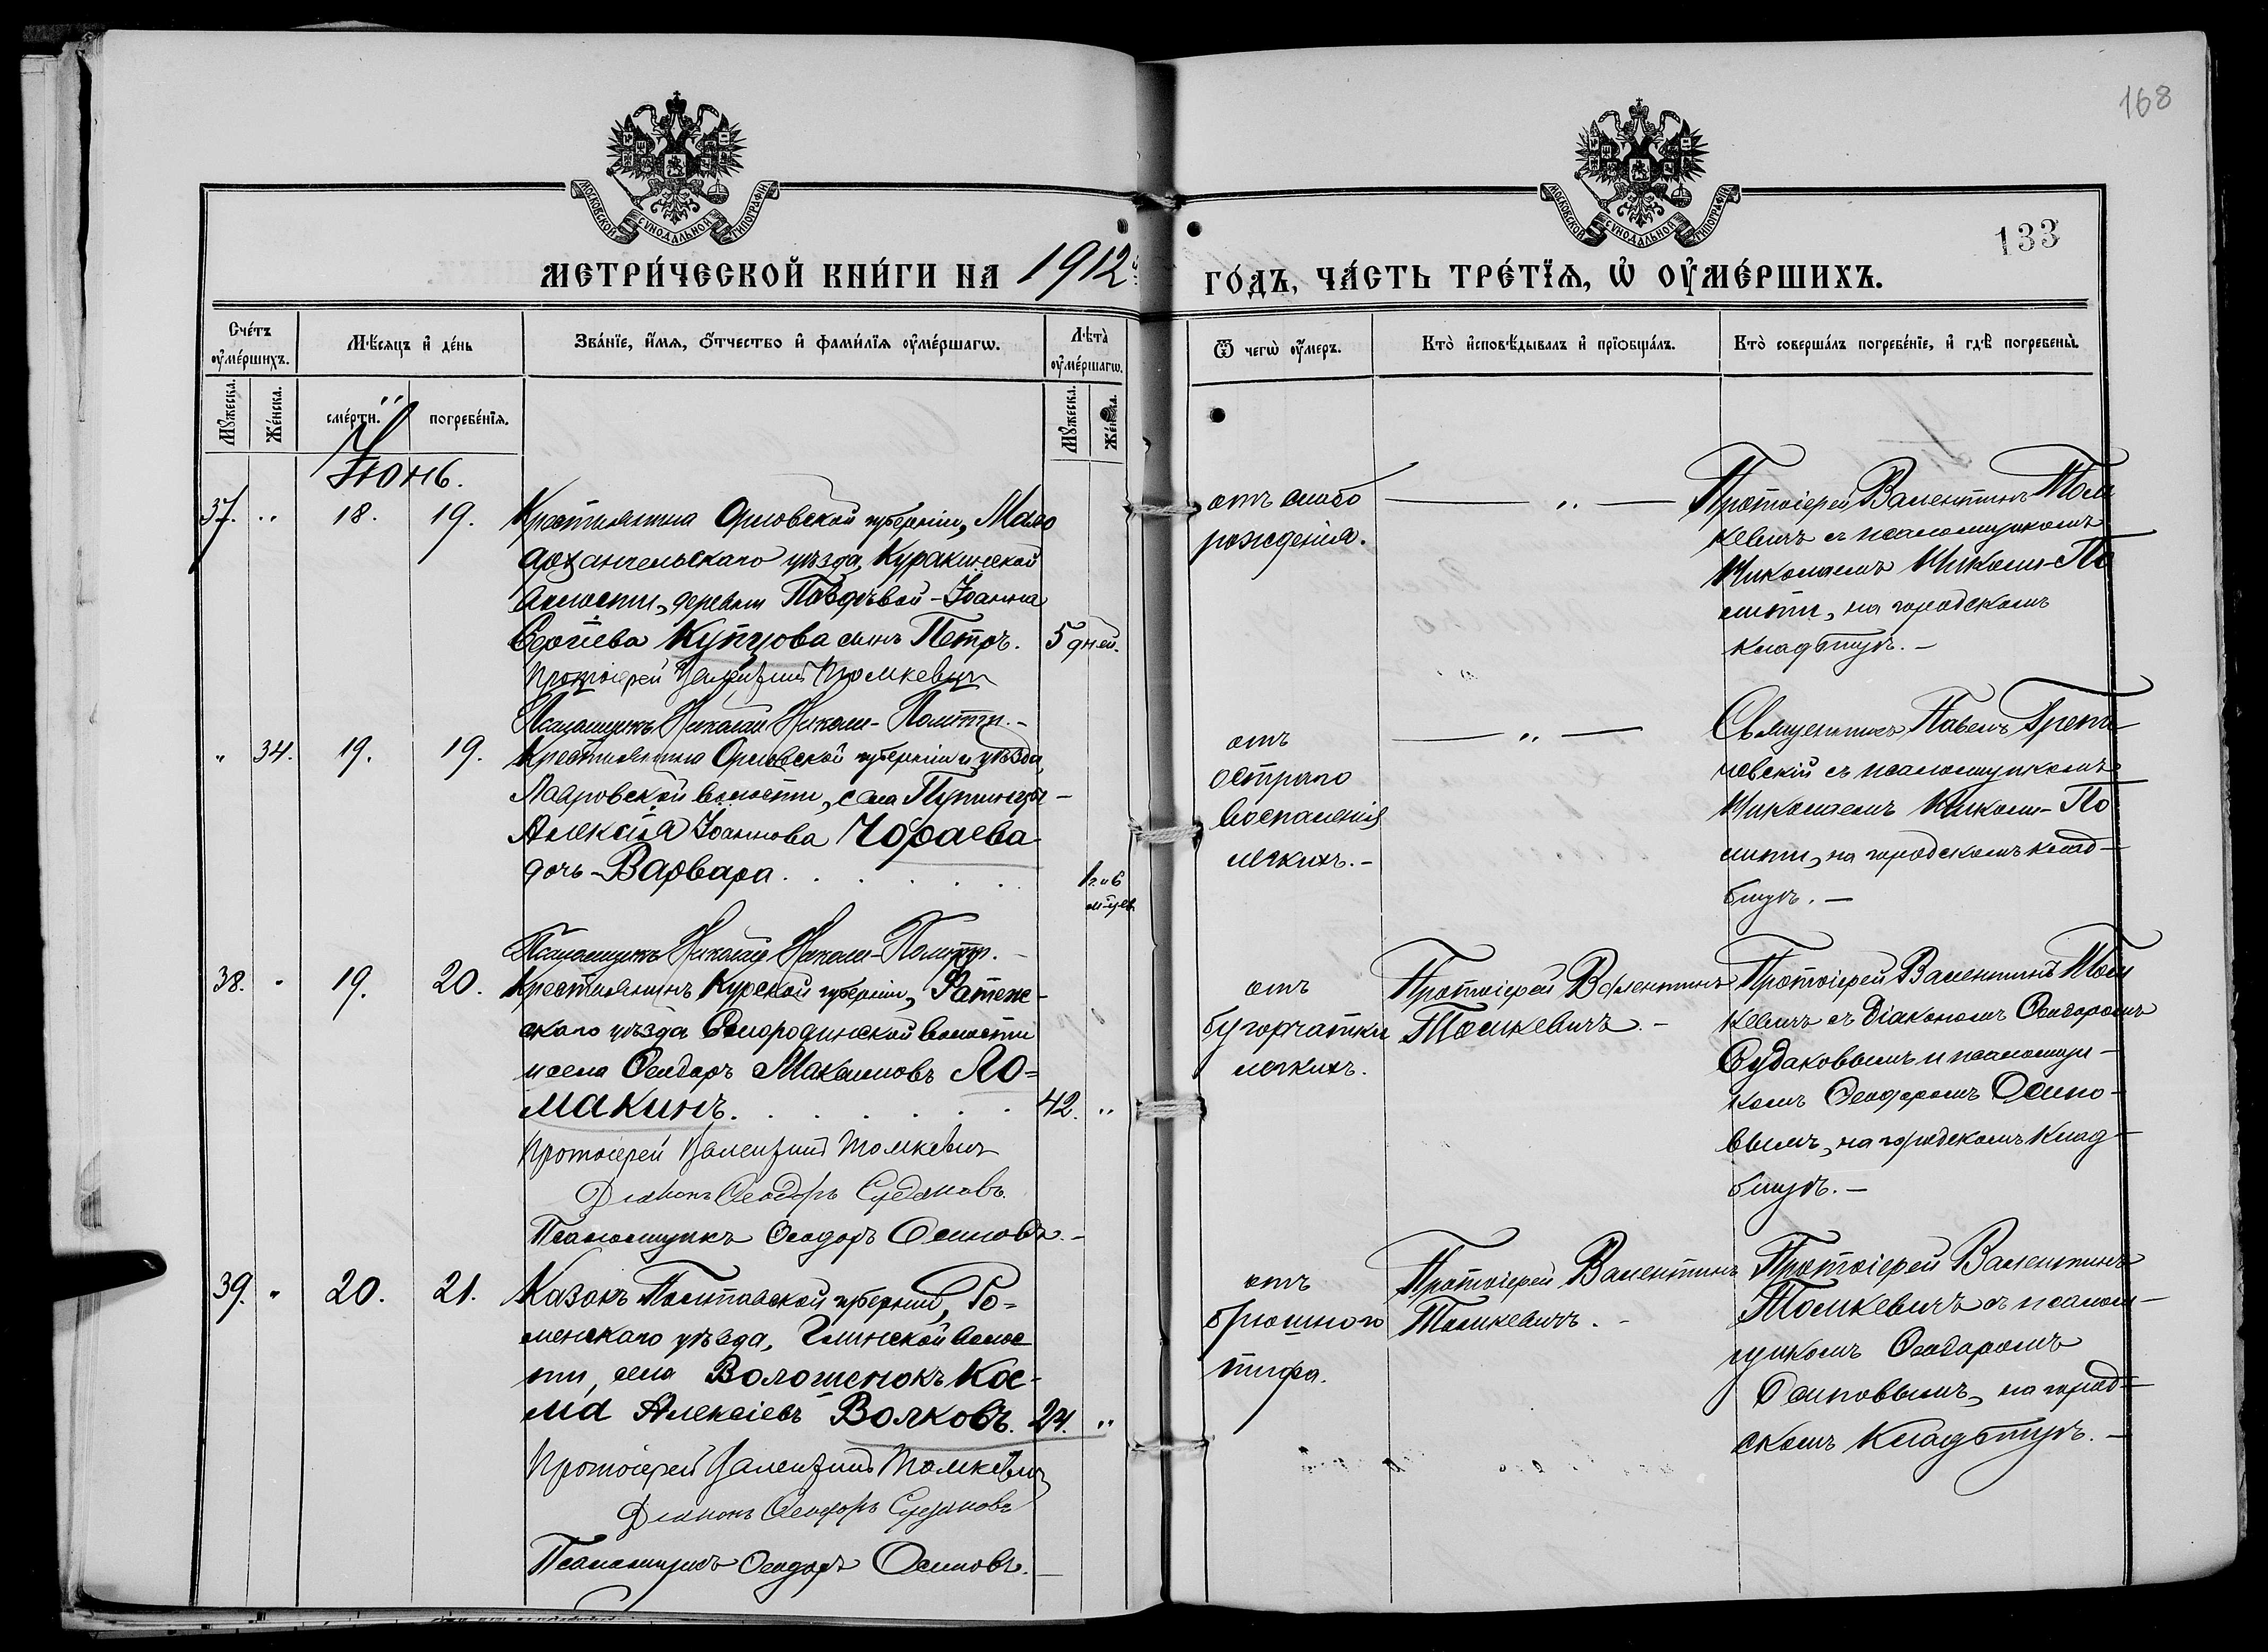 168
МОСКОВСКОЙ СѴНОДАЛЬНОЙ ТИПОГРАФІИ
МОСКОВСКОЙ СѴНОДАЛЬНОЙ ТИПОГРАФІИ
133
МЕТРИ́ЧЕСКОЙ КНИ́ГИ НА 1912 ГО́ДЪ, ЧА́СТЬ ТРЕ́ТЇѦ, Ѡ҆ ОУ҆МЕ́РШИХЪ.
Сче́тъ оу҆ме́ршихъ.
Мѣ́сяцъ и҆ де́нь
Зва́нїе, и҆́мя, ѻ҆́тчество и҆ фами́лїя оу҆ме́ршагѡ.
Лѣ́та̀ оу҆ме́ршагѡ.
Ѿ чегѡ̀ оу҆́меръ.
Кто̀ и҆сповѣ́дывалъ и҆ прїѡбща́лъ.
Кто̀ соверша́лъ погребе́нїе, и҆ гдѣ̀ погребены̀.
Мꙋ́жеска.
Же́нска.
сме́рти.
погребе́нїя.
Мꙋ́жеска.
Же́нска.
Іюнь.
37. „ 18. 19.
Крестьянина Орловской губерніи, Мало
архангельскаго уѣзда, Куракинской
волости, деревни Іоанна
Сергіева Купцова сынъ Петръ. 5 дней.
Протоіерей Валентинъ Томкевичъ
Псаломщикъ Николай Николи-Политти.
отъ слабо
рожденія.
— „ —
Протоіерей Валентинъ Том
кевичъ съ псаломщикомъ
Николаемъ Николи-По
литти, на городскомъ
кладбищѣ. —
„ 34. 19. 19.
Крестьянина Орловской губерніи и уѣзда,
Лавровской волости, села
Алексія Іоаннова Чораева
дочь Варвара. 1 г. и 6
м-цев.
Псаломщикъ Николай Николи-Политти.
отъ
остраго
воспаленія
легкихъ. —
— „ —
Священникъ Павелъ
съ псаломщикомъ
Николаемъ Николи-По
литти, на городскомъ клад-
бищѣ. —
38. „ 19. 20.
Крестьянинъ Курской губерніи, Фатеж-
скаго уѣзда Смородинской волости
и села Ѳеодоръ Максимовъ Ло=
макинъ. 42. „
Протоіерей Валентинъ Томкевичъ
Діаконъ Ѳеодоръ Судаковъ.
Псаломщикъ Ѳеодоръ Осиповъ. —
отъ
бугорчатки
легкихъ.
Протоіерей Валентинъ
Томкевичъ. —
Протоіерей Валентинъ Том
кевичъ съ Діакономъ Ѳеодоромъ
Судаковымъ и псаломщи-
комъ Ѳеодоромъ Осипо-
вымъ, на городскомъ клад-
бищѣ. —
39. „ 20. 21.
Казакъ Полтавской губерніи, Ро=
менскаго уѣзда, Глинской волос
ти, села Волошенокъ Кос-
ма Алексіевъ Волковъ. 24. „
Протоіерей Валентинъ Томкевичъ
Діаконъ Ѳеодоръ Судаковъ
Псаломщикъ Ѳеодоръ Осиповъ. —
отъ
брюшного
тифа.
Протоіерей Валентинъ
Томкевичъ. —
Протоіерей Валентинъ
Томкевичъ съ псалом-
щикомъ Ѳеодоромъ
Осиповымъ, на город-
скомъ кладбищѣ. —